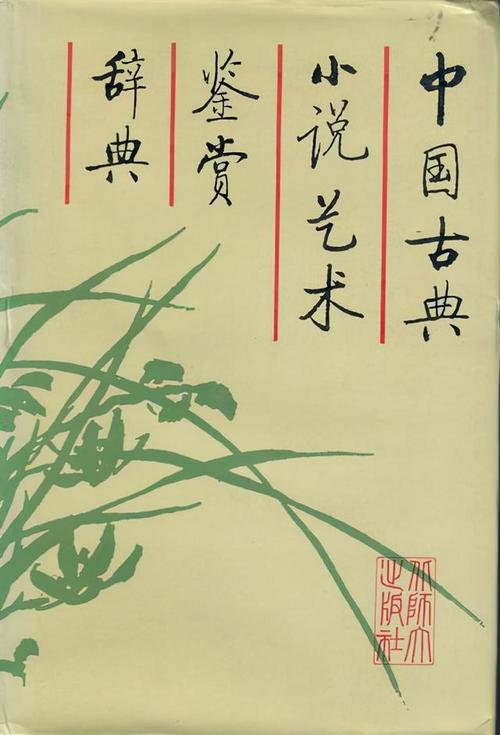 中国古典
小说艺术
鉴赏
辞典
北师大
出版社